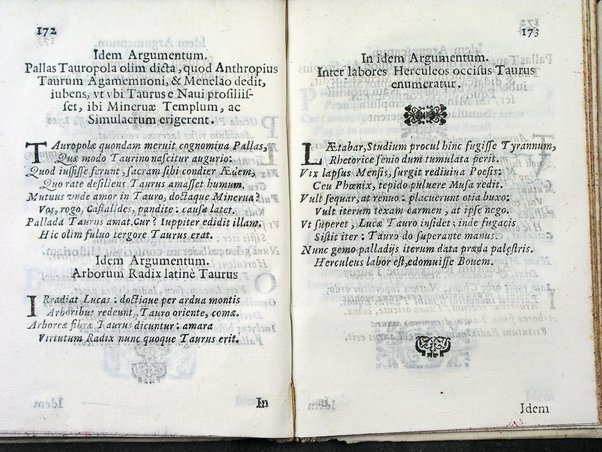 172
Idem Argumentum.
Pallas Tauropola olim dicta, quod Anthropius
Taurum Agamemnoni, & Menelao dedit,
iubens, vt vbi Taurus e Naui prosiliis-
set, ibi Mineruæ Templum, ac
Simulacrum erigerent.
Tauropolæ quondam meruit cognomina Pallas,
Quæ modo Taurino nascitur augurio:
Quod iussisse ferunt, sacram sibi condier Ædem,
Quo rate desiliens Taurus amasset humum.
Mutuus vnde amor in Tauro, doctaque Minerua?
Vos, rogo, Castalides, pandite: causa latet.
Pallada Taurus amat. Cur? Iuppiter edidit illam,
Hic olim fuluo tergore Taurus erat.
Idem Argumentum.
Arborum Radix latinè Taurus
IRradiat Lucas: doctique per ardua montis
Arboribus redeunt, Tauro oriente, comæ.
Arboreæ fibræ Taurus dicuntur: amara
Virtutum Radix nunc quoque Taurus erit.
In
173
In idem Argumentum.
Inter labores Herculeos occisus Taurus
enumeratur.
LÆtabar, Studium procul hinc fugisse Tyrannum,
Rhetorice senio dum tumulata perit.
Vix lapsus Mensis, surgit rediuiua Poesis:
Ceu Phœnix, tepido puluere Musa redit.
Vult sequar, at renuo: placuerunt otia buxo:
Vult iterum texam carmen, at ipse nego.
Vt superet, Lucæ Tauro insidet: inde fugacis
Sistit iter: Tauro do superante manus.
Nunc gemo palladijs iterum data præda palestris.
Herculeus labor est, edomuisse Bouem.
Idem